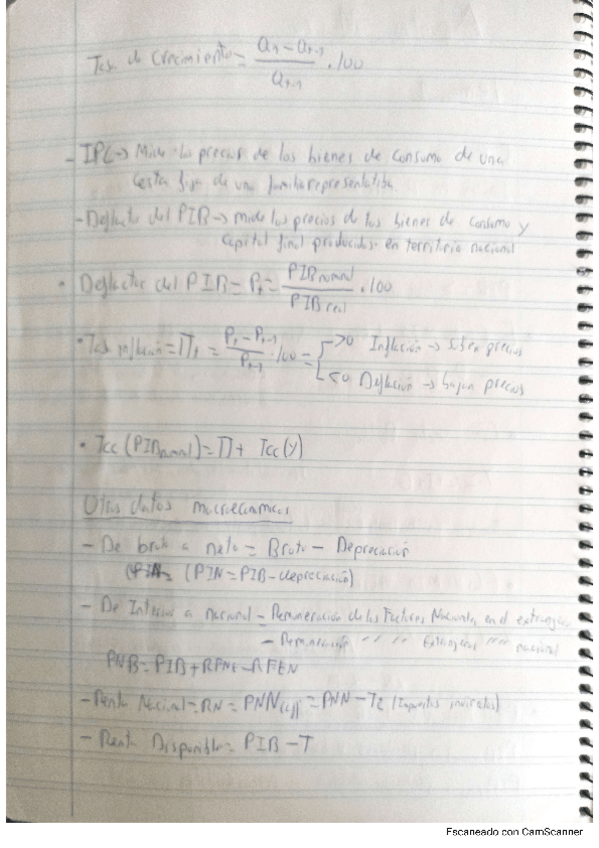 Tasa de Crecimiento = (Qt - Qt-1) / Qt-1 . 100
- IPC → Mide los precios de los bienes de consumo de una
cesta fija de una familia representativa.
- Deflactor del PIB → mide los precios de los bienes de consumo y
capital final producidos en territorio nacional
• Deflactor del PIB = Pt = PIB nominal / PIB real . 100
• Tasa inflación = Πt = (Pt - Pt-1) / Pt-1 . 100 = >0 Inflación → suben precios
<0 Deflación → bajan precios
• Tcc (PIBnominal) = Π + Tcc (y)
Otros datos macroeconómicos
- De bruto a neto = Bruto - Depreciación
(PIN = PIB - depreciación)
- De Interior a nacional = Remuneración de los Factores Nacionales en el extranjero
- Remuneración " " " Extranjeros " " " nacional
PNB = PIB + RFNE - RFEN
- Renta Nacional = RN = PNN = PNN - (Impuestos indirectos)
- Renta Disponible = PIB - T
Escaneado con CamScanner